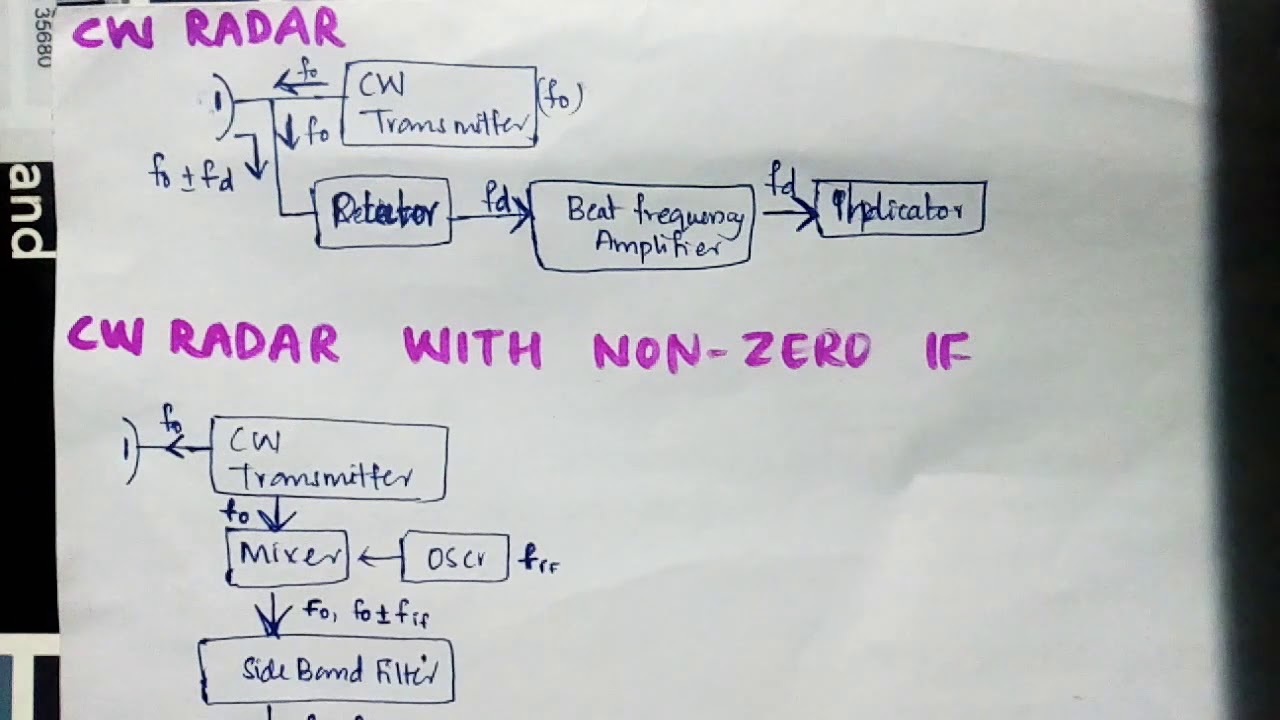 35680
and
CW RADAR
f₀
CW
Transmitter
(f₀)
f₀
f₀ ± fd
Detector
fd
Beat frequency
Amplifier
fd
Indicator
CW RADAR WITH NON-ZERO IF
f₀
CW
Transmitter
f₀
Mixer
OSCr
fIF
F₀, f₀ ± fif
Side Band Filter